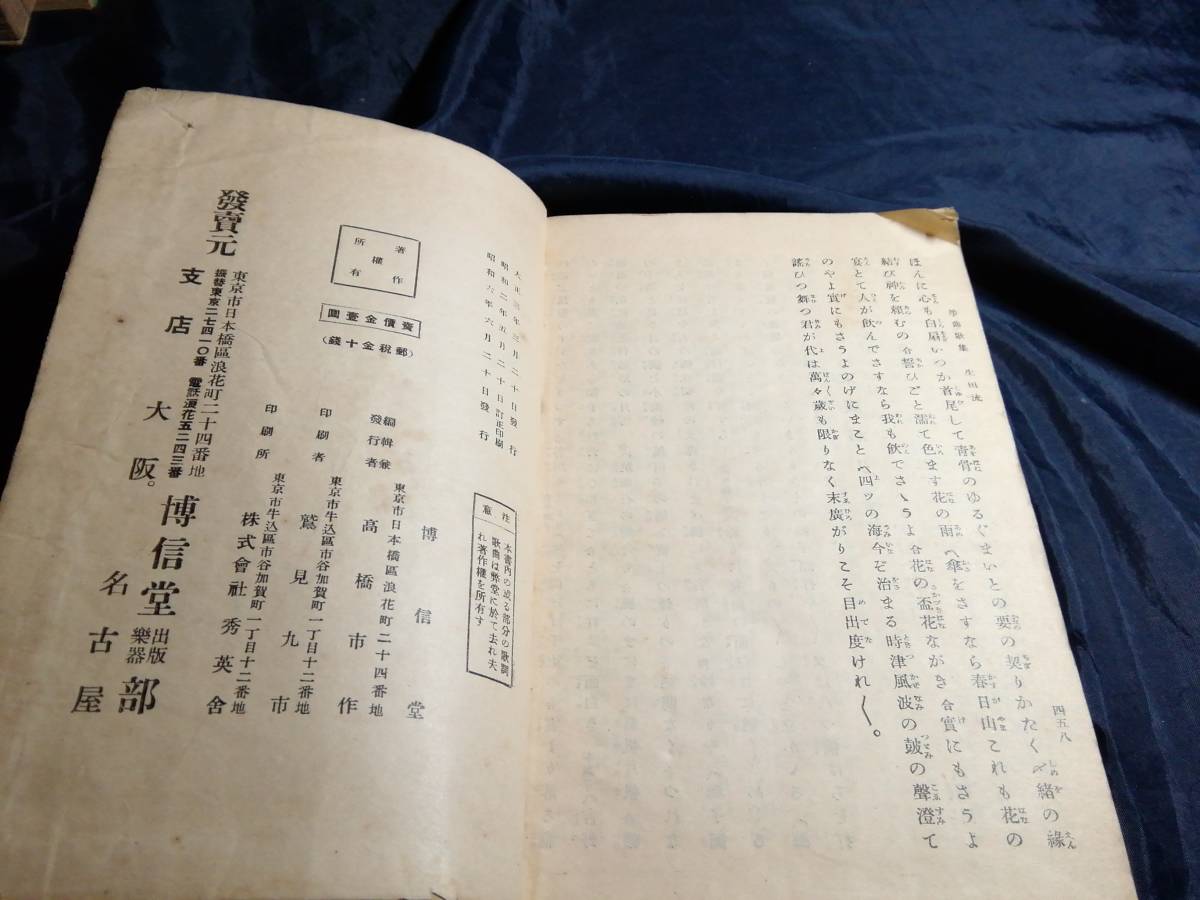 箏曲歌集 生田流 四五八
ほんに心も白扇いつか首尾して青骨のゆるぐまいとの要の契りかたく〆緒の縁
結び神を頼むの合誓ひごと濡て色ます花の雨〽傘をさすなら春日山これも花の
宴とて人が飲んでさすなら我も飲でさゝうよ合花の盃花ながき合實にもさうよ
のやよ實にもさうよのげにまこと〽四ツの海今ぞ治まる時津風波の鼓の聲澄て
謠ひつ舞つ君が代は萬々歳も限りなく末廣がりこそ目出度けれ〱。
大正三年三月二十日發行
昭和二年五月二十日訂正印刷
昭和六年六月二十日發行
著作權所有
賣價金壹圓
(郵稅金十錢)
注意
本書内の或る部分の歌詞
歌曲は弊堂に於て去れ夫
れ著作權を所有す
博信堂
東京市日本橋區浪花町二十四番地
編輯兼發行者 高橋市作
東京市牛込區市谷加賀町一丁目十二番地
印刷者 鷲見九市
東京市牛込區市谷加賀町一丁目十二番地
印刷所 株式會社秀英舍
發賣元
東京市日本橋區浪花町二十四番地
振替東京二七四一〇番 電話浪花五二四三番
博信堂 出版樂器部
支店 大阪。名古屋